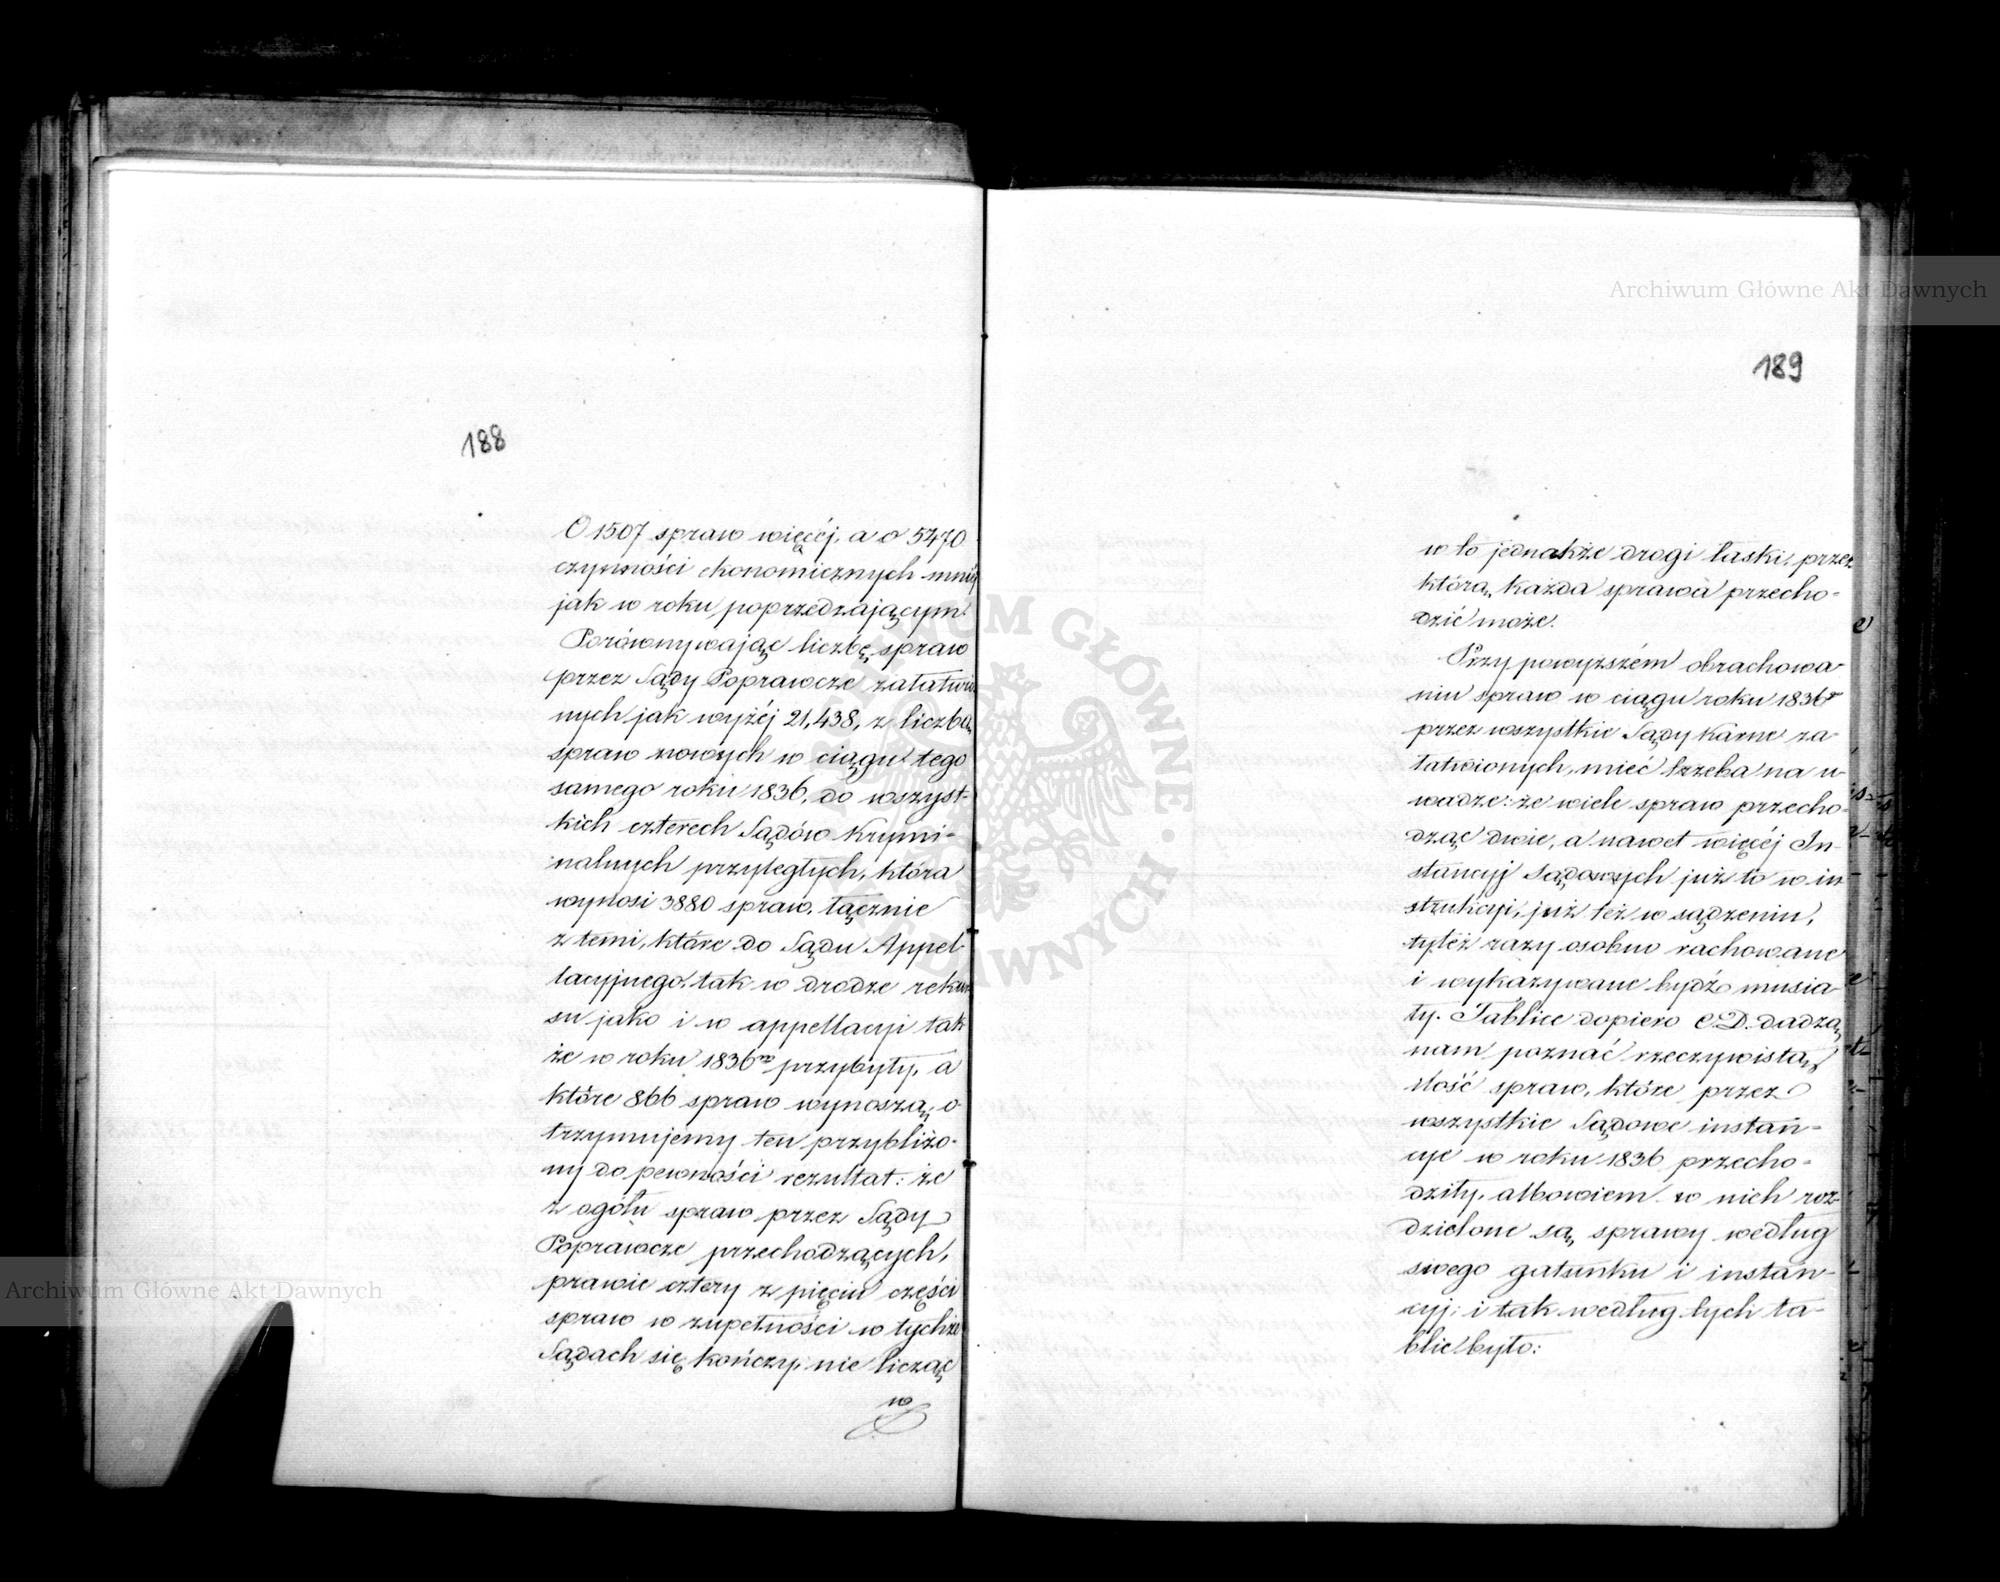 188
O 1507 spraw więcéj, a o 5470
czynności ekonomicznych mniéj
jak w roku poprzedzającym.
Porównywając liczbę spraw
przez Sądy Poprawcze załatwio
nych jak wyżéj 21,438, z liczbą
spraw nowych w ciągu tego
samego roku 1836, do wszyst-
kich czterech Sądów Krymi-
nalnych przyległych, która
wynosi 3880 spraw, łącznie
z temi, które do Sądu Appel-
lacyjnego, tak w drodze rekur
su jako i w appellacyi tak
że w roku 1836ym przybyły, a
które 866 spraw wynoszą, o-
trzymujemy ten przybliżo-
ny do pewności rezultat: że
z ogółu spraw przez Sądy
Poprawcze przechodzących,
prawie cztery z pięciu części
spraw w zupełności w tychże
Sądach się kończy, nie licząc
w
189
w to jednakże drogi łaski, przez
którą każda sprawa przecho-
dzić może.
Przy powyższém obrachowa-
niu spraw w ciągu roku 1836r
przez wszystkie Sądy Karne za-
łatwionych, mieć trzeba na u-
wadze: że wiele spraw przecho-
dząc dwie, a nawet więcéj In-
stancyj Sądowych już to w in
strukcyi, już też w sądzeniu,
tyléż razy osobno rachowane
i wykazywane bydź musia-
ły. Tablice dopiero C.D. dadzą
nam poznać rzeczywistą
ilość spraw, które przez
wszystkie Sądowe instan-
cye w roku 1836 przecho-
dziły, albowiem w nich roz-
dzielone są sprawy według
swego gatunku i instan-
cyj; i tak według tych ta-
blic było:
Archiwum Główne Akt Dawnych
Archiwum Główne Akt Dawnych